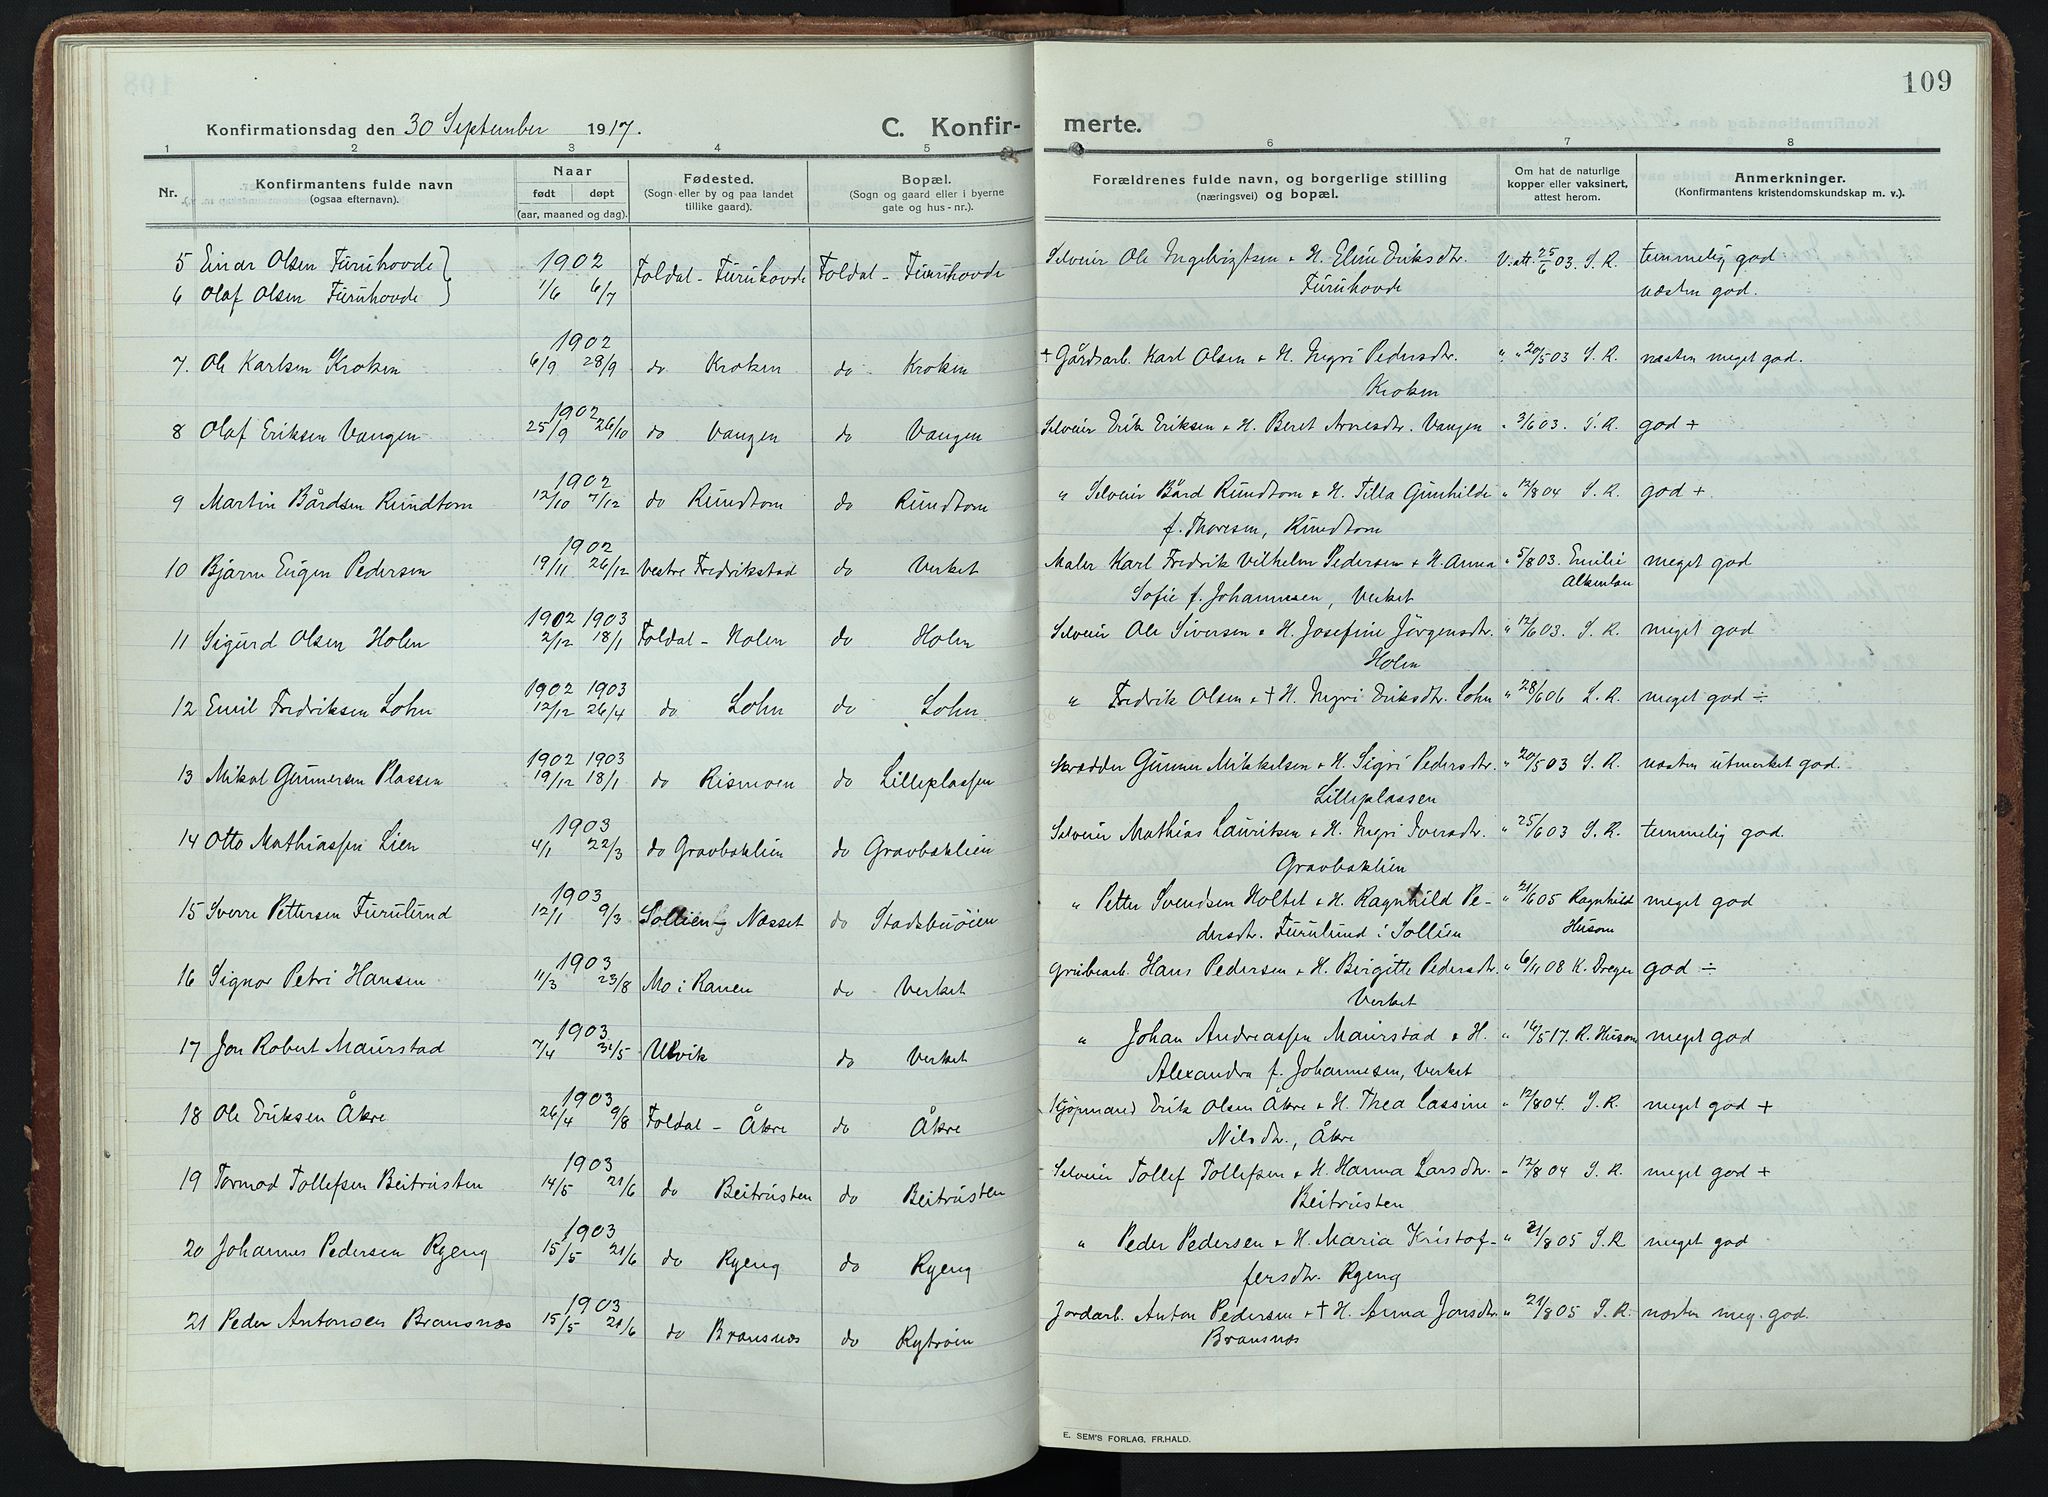 109
Konfirmationsdag den 30 September 1917.
C. Konfir- merte.
1 2 3 4 5 6 7 8
Nr. Konfirmantens fulde navn (ogsaa efternavn). Naar født døpt (aar, maaned og dag). Fødested. (Sogn eller by og paa landet tillike gaard). Bopæl. (Sogn og gaard eller i byerne gate og hus-nr.). Forældrenes fulde navn, og borgerlige stilling (næringsvei) og bopæl. Om hat de naturlige kopper eller vaksinert, attest herom. Anmerkninger. (Konfirmantens kristendomskundskap m. v.).
5 Einar Olsen Furuhovde } 1902 Foldal - Furuhovde Foldal - Furuhovde Selveier Ole Ingebrigtsen & H. Eline Eriksdtr. V. att. 25/6 03. S. R. temmelig god
6 Olaf Olsen Furuhovde } 1/6 6/7 Furuhovde næsten god.
1902
7. Ole Karlsen Kroken 6/9 28/9 do Kroken do Kroken + Gårdsarb. Karl Olsen & H. Ingri Pedersdtr. " " 20/5 03 S. R. næsten meget god.
Kroken
1902
8 Olaf Eriksen Vangen 25/9 26/10 do Vangen do Vangen Selveier Erik Eriksen & H. Beret Arnesdtr. Vangen " 3/6 03. S. R. god +
1902
9 Martin Bårdsen Rundtom 12/10 7/12 do Rundtom do Rundtom " Selveier Bård Rundtom & H. Tilla Gunhilde " 12/8 04 S. R. god +
f. Thoresen, Rundtom
1902
10 Bjarne Eugen Pedersen 19/11 26/12 Vestre Fredrikstad do Verket Maler Karl Fredrik Vilhelm Pedersen & H. Anna " 5/8 03. Emilie meget god
Sofie f. Johannesen, Verket
1902 1903
11 Sigurd Olsen Holen 2/12 18/1 Foldal - Holen do Holen Selveier Ole Siversen & H. Josefine Jörgensdtr. " 12/6 03. S. R. meget god
Holen
1902 1903
12 Emil Fredriksen Lohn 12/12 26/4 do Lohn do Lohn " Fredrik Olsen & † H. Ingri Eriksdtr. Lohn " 28/6 06 S. R. meget god ÷
1902 1903
13 Mikal Gunnersen Plassen 19/12 18/1 do Rismoen do Lilleplassen Skrædder Gunner Mikkelsen & H. Sigri Pedersdtr. " 20/5 03 S. R. næsten utmerket god.
Lilleplassen
1903
14 Otto Mathiassen Lien 4/1 22/3 do Gravbaklien do Gravbaklien Selveier Mathias Lauritsen & H. Ingri Iversdtr. " 25/6 03 S. R. temmelig god.
Gravbaklien
1903
15 Sverre Pettersen Furulund 12/1 9/3 Sollien Næsset do Stadsbuöien " Petter Svendsen Holtet & H. Ragnhild Pe- " 21/6 05 Ragnhild meget god
dersdtr. Furulund i Sollien Husom
1903
16 Signor Petri Hansen 11/3 23/8 Mo i Ranen do Verket Grubearb. Hans Pedersen & H. Birgitte Pedersdtr. " 6/11 08 K. Dreyer god ÷
Verket
1903
17 Jon Robert Maurstad 7/4 31/5 Ulvik do Verket " Johan Andreassen Maurstad & H. " 16/5 17. R. Husom meget god
Alexandra f. Johannesen, Verket
1903
18 Ole Eriksen Åkre 26/4 9/8 Foldal - Åkre do Åkre Kjöpmand Erik Olsen Åkre & H. Thea Lassine " 12/8 04. S. R. meget god +
Nilsdtr., Åkre
1903
19 Tormod Tollefsen Beitrusten 14/5 21/6 do Beitrusten do Beitrusten Selveier Tollef Tollefsen & H. Hanna Larsdtr. " 12/8 04 S. R. meget god +
Beitrusten
1903
20 Johannes Pedersen Ryeng 15/5 21/6 do Ryeng do Ryeng " Peder Pedersen & H. Maria Kristof- " 21/8 05 S. R meget god
fersdtr. Ryeng
1903
21 Peder Antonsen Bransnæs 15/5 21/6 do Bransnæs do Rytröin Jordarb. Anton Pedersen & † H. Anna Jonsdtr. " 21/8 05 S. R. næsten meg. god.
Bransnæs
E. SEM'S FORLAG, FR.HALD.